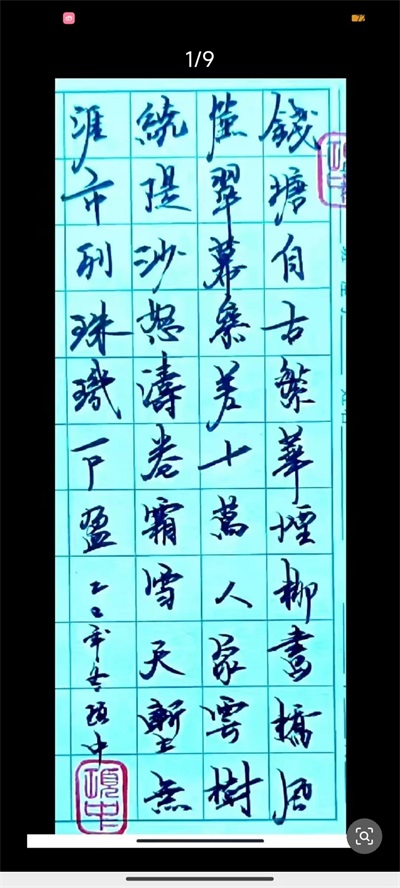 1/9
錢塘自古繁華煙柳畫橋風
簾翠幕參差十萬人家雲樹
繞堤沙怒濤卷霜雪天塹無
涯市列珠璣戶盈
年冬項中
項中